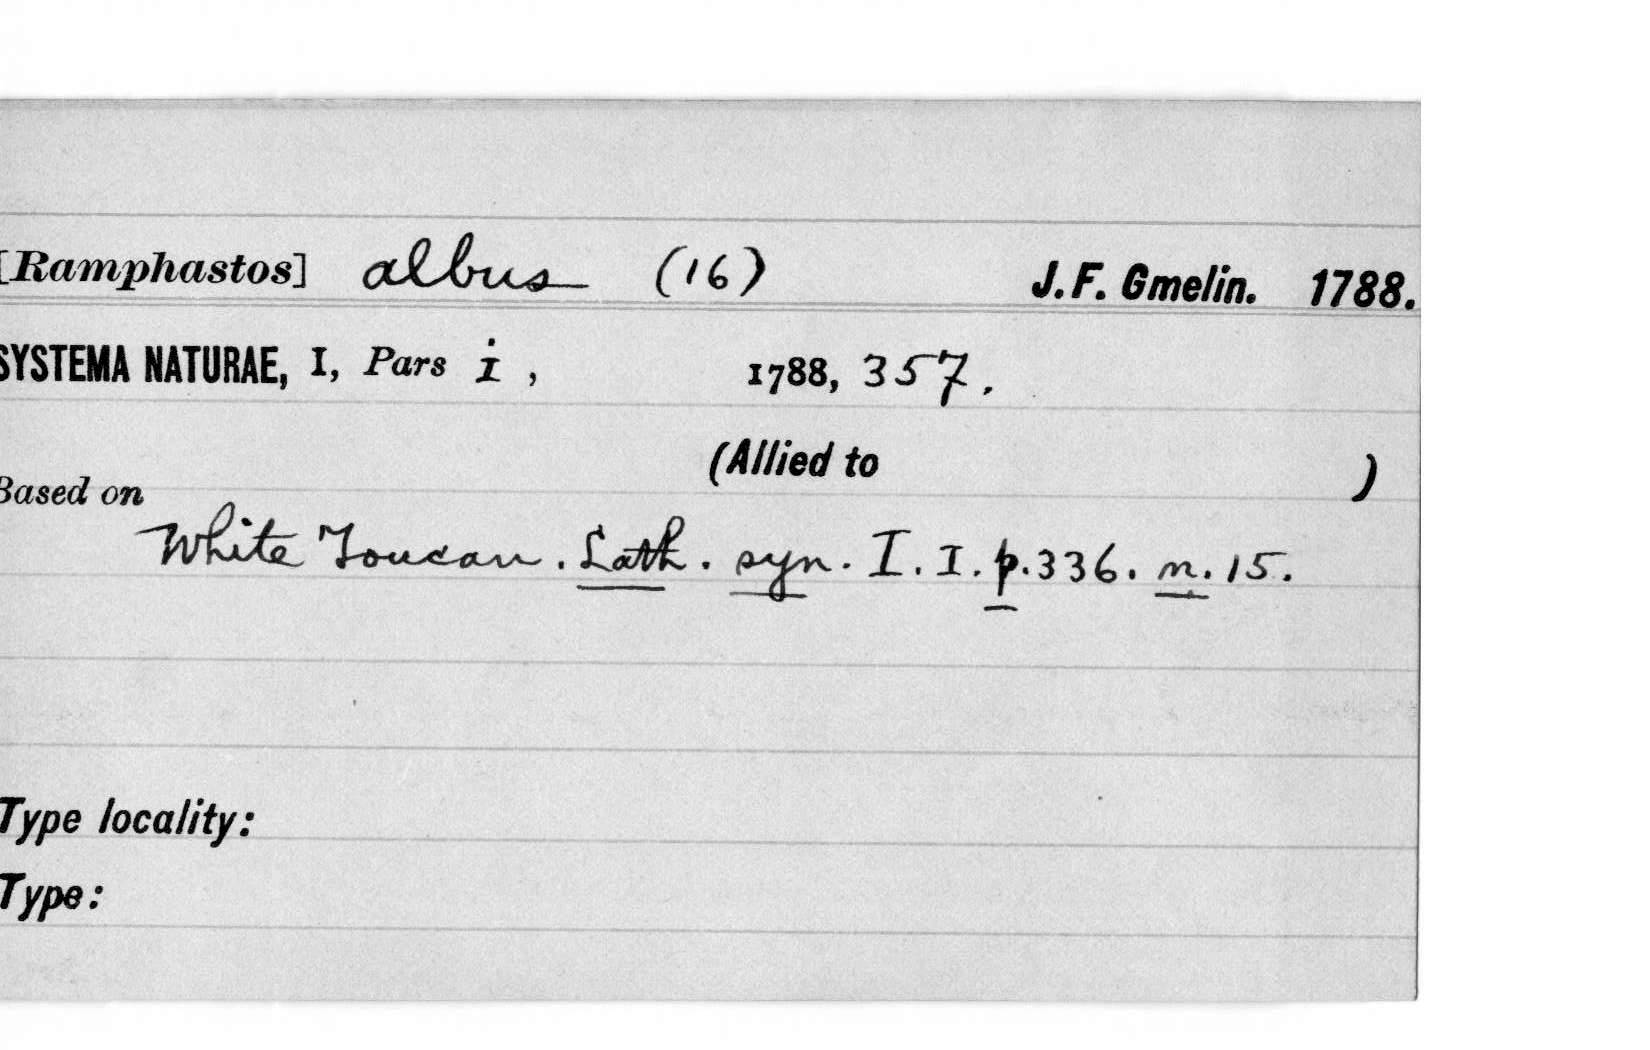 [Ramphastos] albus (16) J. F. Gmelin. 1788.
SYSTEMA NATURAE, I, Pars i, 1788, 357.
(Allied to )
Based on
White Toucan. Lath. syn. I. I. p. 336. n. 15.
Type locality:
Type: